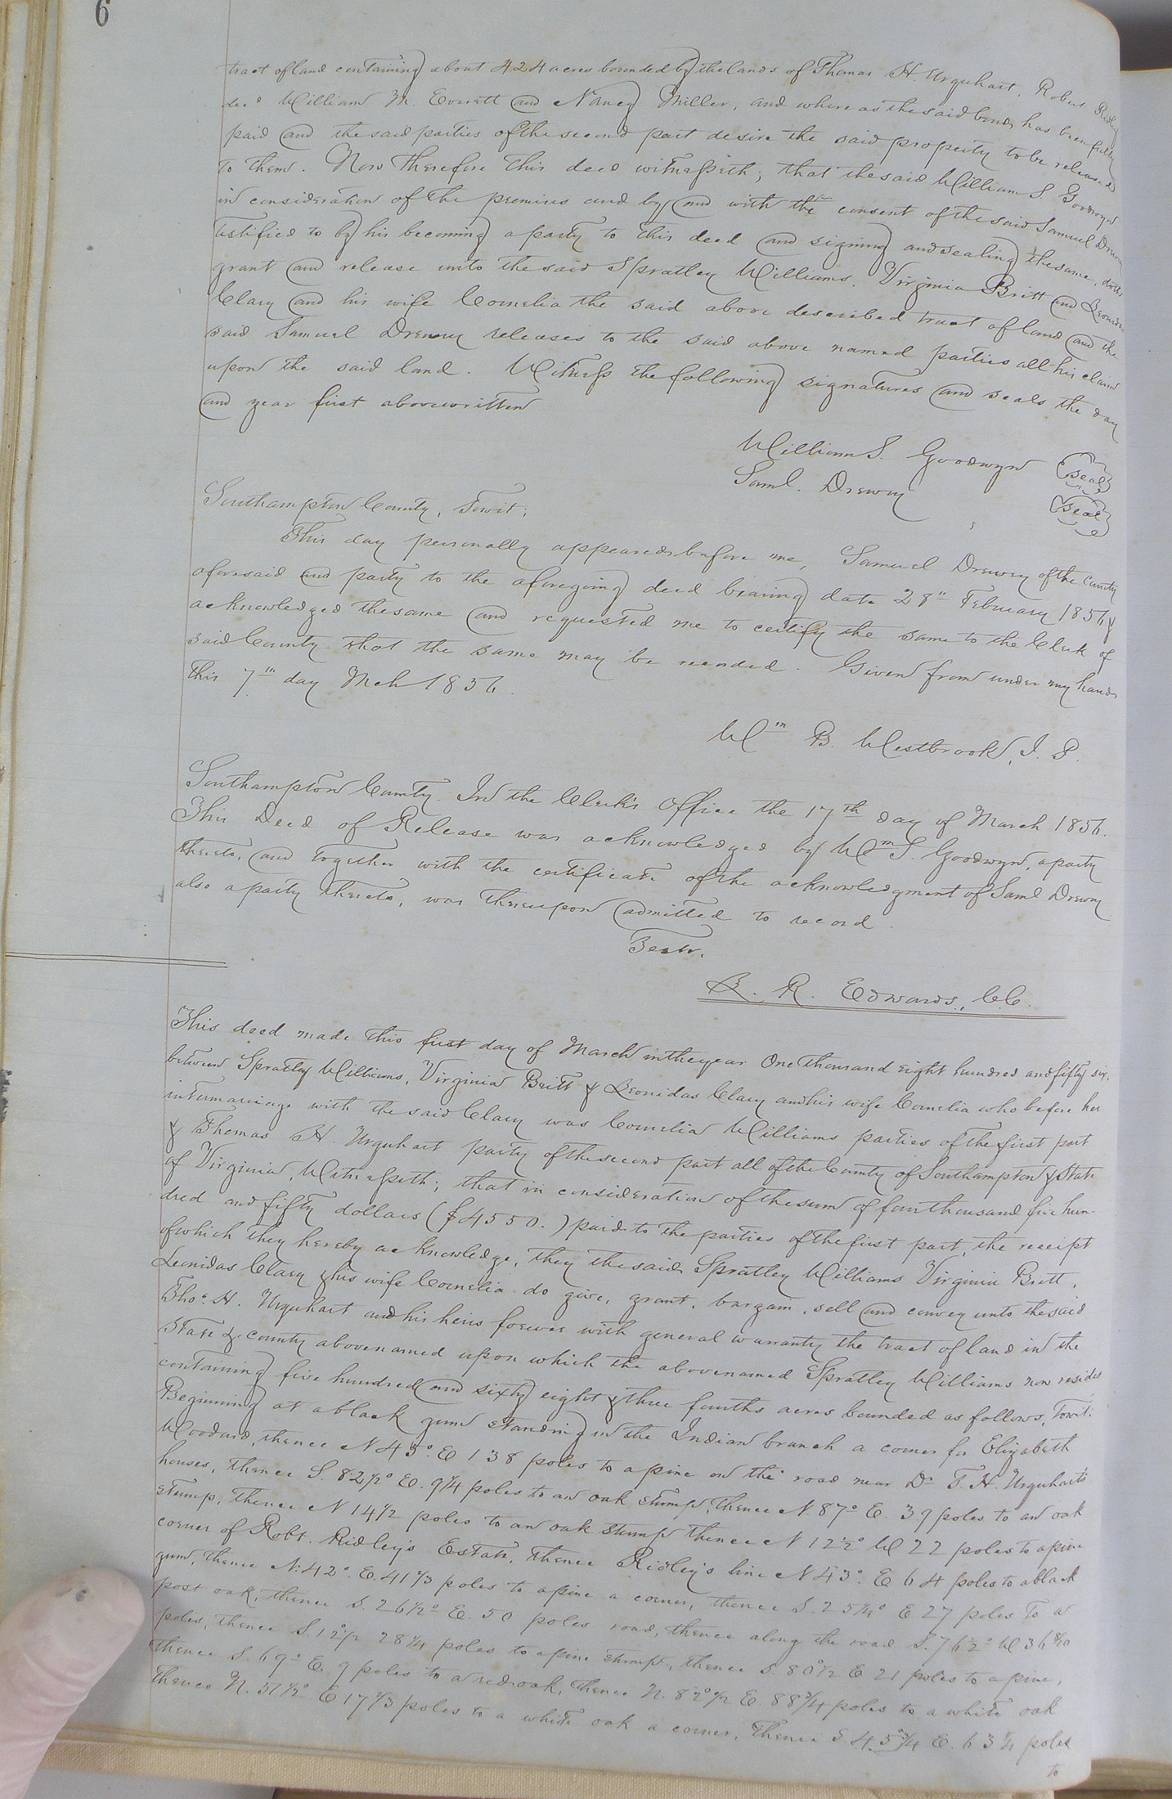 6
tract of land containing about 424 acres bounded by the lands of Thomas H Urquhart, Robert Ridley
decd William M. Everett and Nancy Miller, and where as the said bonds has been fully
paid and the said parties of the second part desire the said property to be released
to them. Now therefore this deed witnesseth, that the said William S Goodwyn
in consideration of the premises and by and with the consent of the said Samuel Drewry
testified to by his becoming a party to this deed and signing and sealing the same, doth
grant and release unto the said Spratley Williams, Virginia Britt and Leonidas
Clary and his wife Cornelia the said above described tract of land and the
said Samuel Drewry releases to the said above named parties all his claim
upon the said land. Witness the following signatures and seals the day
and year first abovewritten
William S. Goodwyn Seal
Saml. Drewry Seal
Southampton County, Towit:
This day personally appeared before me, Samuel Drewry of the County
aforesaid and party to the aforegoing deed bearing date 28th February 1856 &
acknowledged the same and requested me to certify the same to the Clerk of
said County that the same may be recorded. Given from under my hand
this 7th day Mch 1856.
Wm B. Westbrook, J. P.
Southampton County. In the Clerk's Office the 17th day of March 1856.
This Deed of Release was acknowledged by Wm S. Goodwyn, a party
thereto, and together with the certificate of the acknowledgment of Saml Drewry
also a party thereto, was thereupon admitted to record.
Teste.
L. R. Edwards, CC.
This deed made this first day of March in the year One thousand eight hundred and fifty six,
between Spratley Williams, Virginia Britt & Leonidas Clary and his wife Cornelia who before her
intermarriage with the said Clary was Cornelia Williams parties of the first part
& Thomas H Urquhart party of the second part all of the County of Southampton & State
of Virginia, Witnesseth; that in consideration of the sum of four thousand five hun-
dred and fifty dollars ($4550.) paid to the parties of the first part, the receipt
of which they hereby acknowledge, they the said Spratley Williams Virginia Britt,
Leonidas Clary & his wife Cornelia do give, grant, bargain, sell and convey unto the said
Thos. H. Urquhart and his heirs forever with general warranty the tract of land in the
State & county abovenamed upon which the abovenamed Spratley Williams now resides
containing five hundred and sixty eight & three fourths acres bounded as follows, Towit:
Beginning at a black gum standing in the Indian branch a corner for Elizabeth
Woodard, thence N 43° E 138 poles to a pine on the road near Dr T. H. Urquhart's
houses, thence S. 82½° E. 9¼ poles to an oak stump, thence N. 87° E. 39 poles to an oak
stump, thence N 14½ poles to an oak stump thence N 12½° W 22 poles to a pine
corner of Robt. Ridley's Estate, thence Ridley's line N 43° E 64 poles to a black
gum, thence N. 42° E. 41⅓ poles to a pine a corner, thence S. 25¾° E 27 poles to a
post oak, thence S. 26½° E. 50 poles road, thence along the road S. 76½° W 36
poles, thence S. 12°½ 28¼ poles to a pine stump, thence S. 80°½ E 21 poles to a pine,
thence S. 69° E. 9 poles to a red oak, thence N. 82°½ E. 88¾ poles to a white oak
thence N. 51½° E 17⅔ poles to a white oak a corner, thence S 45¾ E. 63¼ poles
to